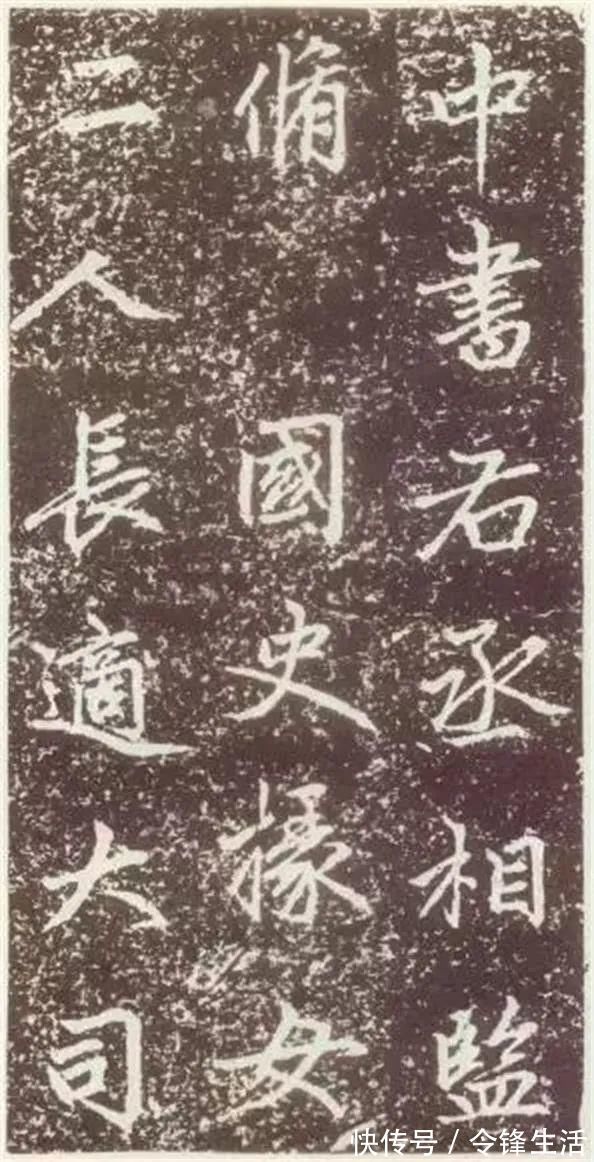 中書右丞相監
脩 國史㨽女
二人長適大司
快传号 / 令锋生活